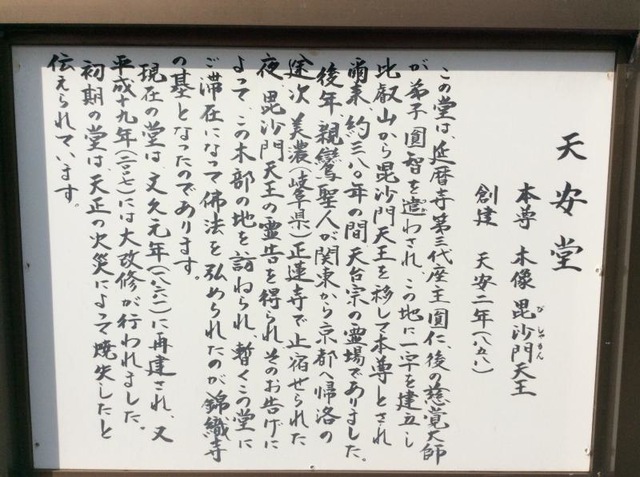 天安堂
本尊 木像 毘沙門天王
びしゃもん
創建 天安二年(八五八)
この堂は、延暦寺第三代座主圓仁、後の慈覚大師
が弟子圓智を遣わされ、この地に一宇を建立し
比叡山から毘沙門天王を移して本尊とされ
爾来、約三八〇年の間天台宗の霊場でありました。
後年、親鸞聖人が関東から京都へ帰洛の
途次、美濃(岐阜県)正運寺で止宿せられた
夜、毘沙門天王の霊告を得られ、そのお告げに
よって、この木部の地を訪ねられ、暫くこの堂に
ご滞在になって佛法を弘められたのが錦織寺
の基となったのであります。
現在の堂は、文久元年(一八六一)に再建され、又
平成十九年(二〇〇七)には大改修が行われました。
初期の堂は、天正の火災によって焼失したと
伝えられています。